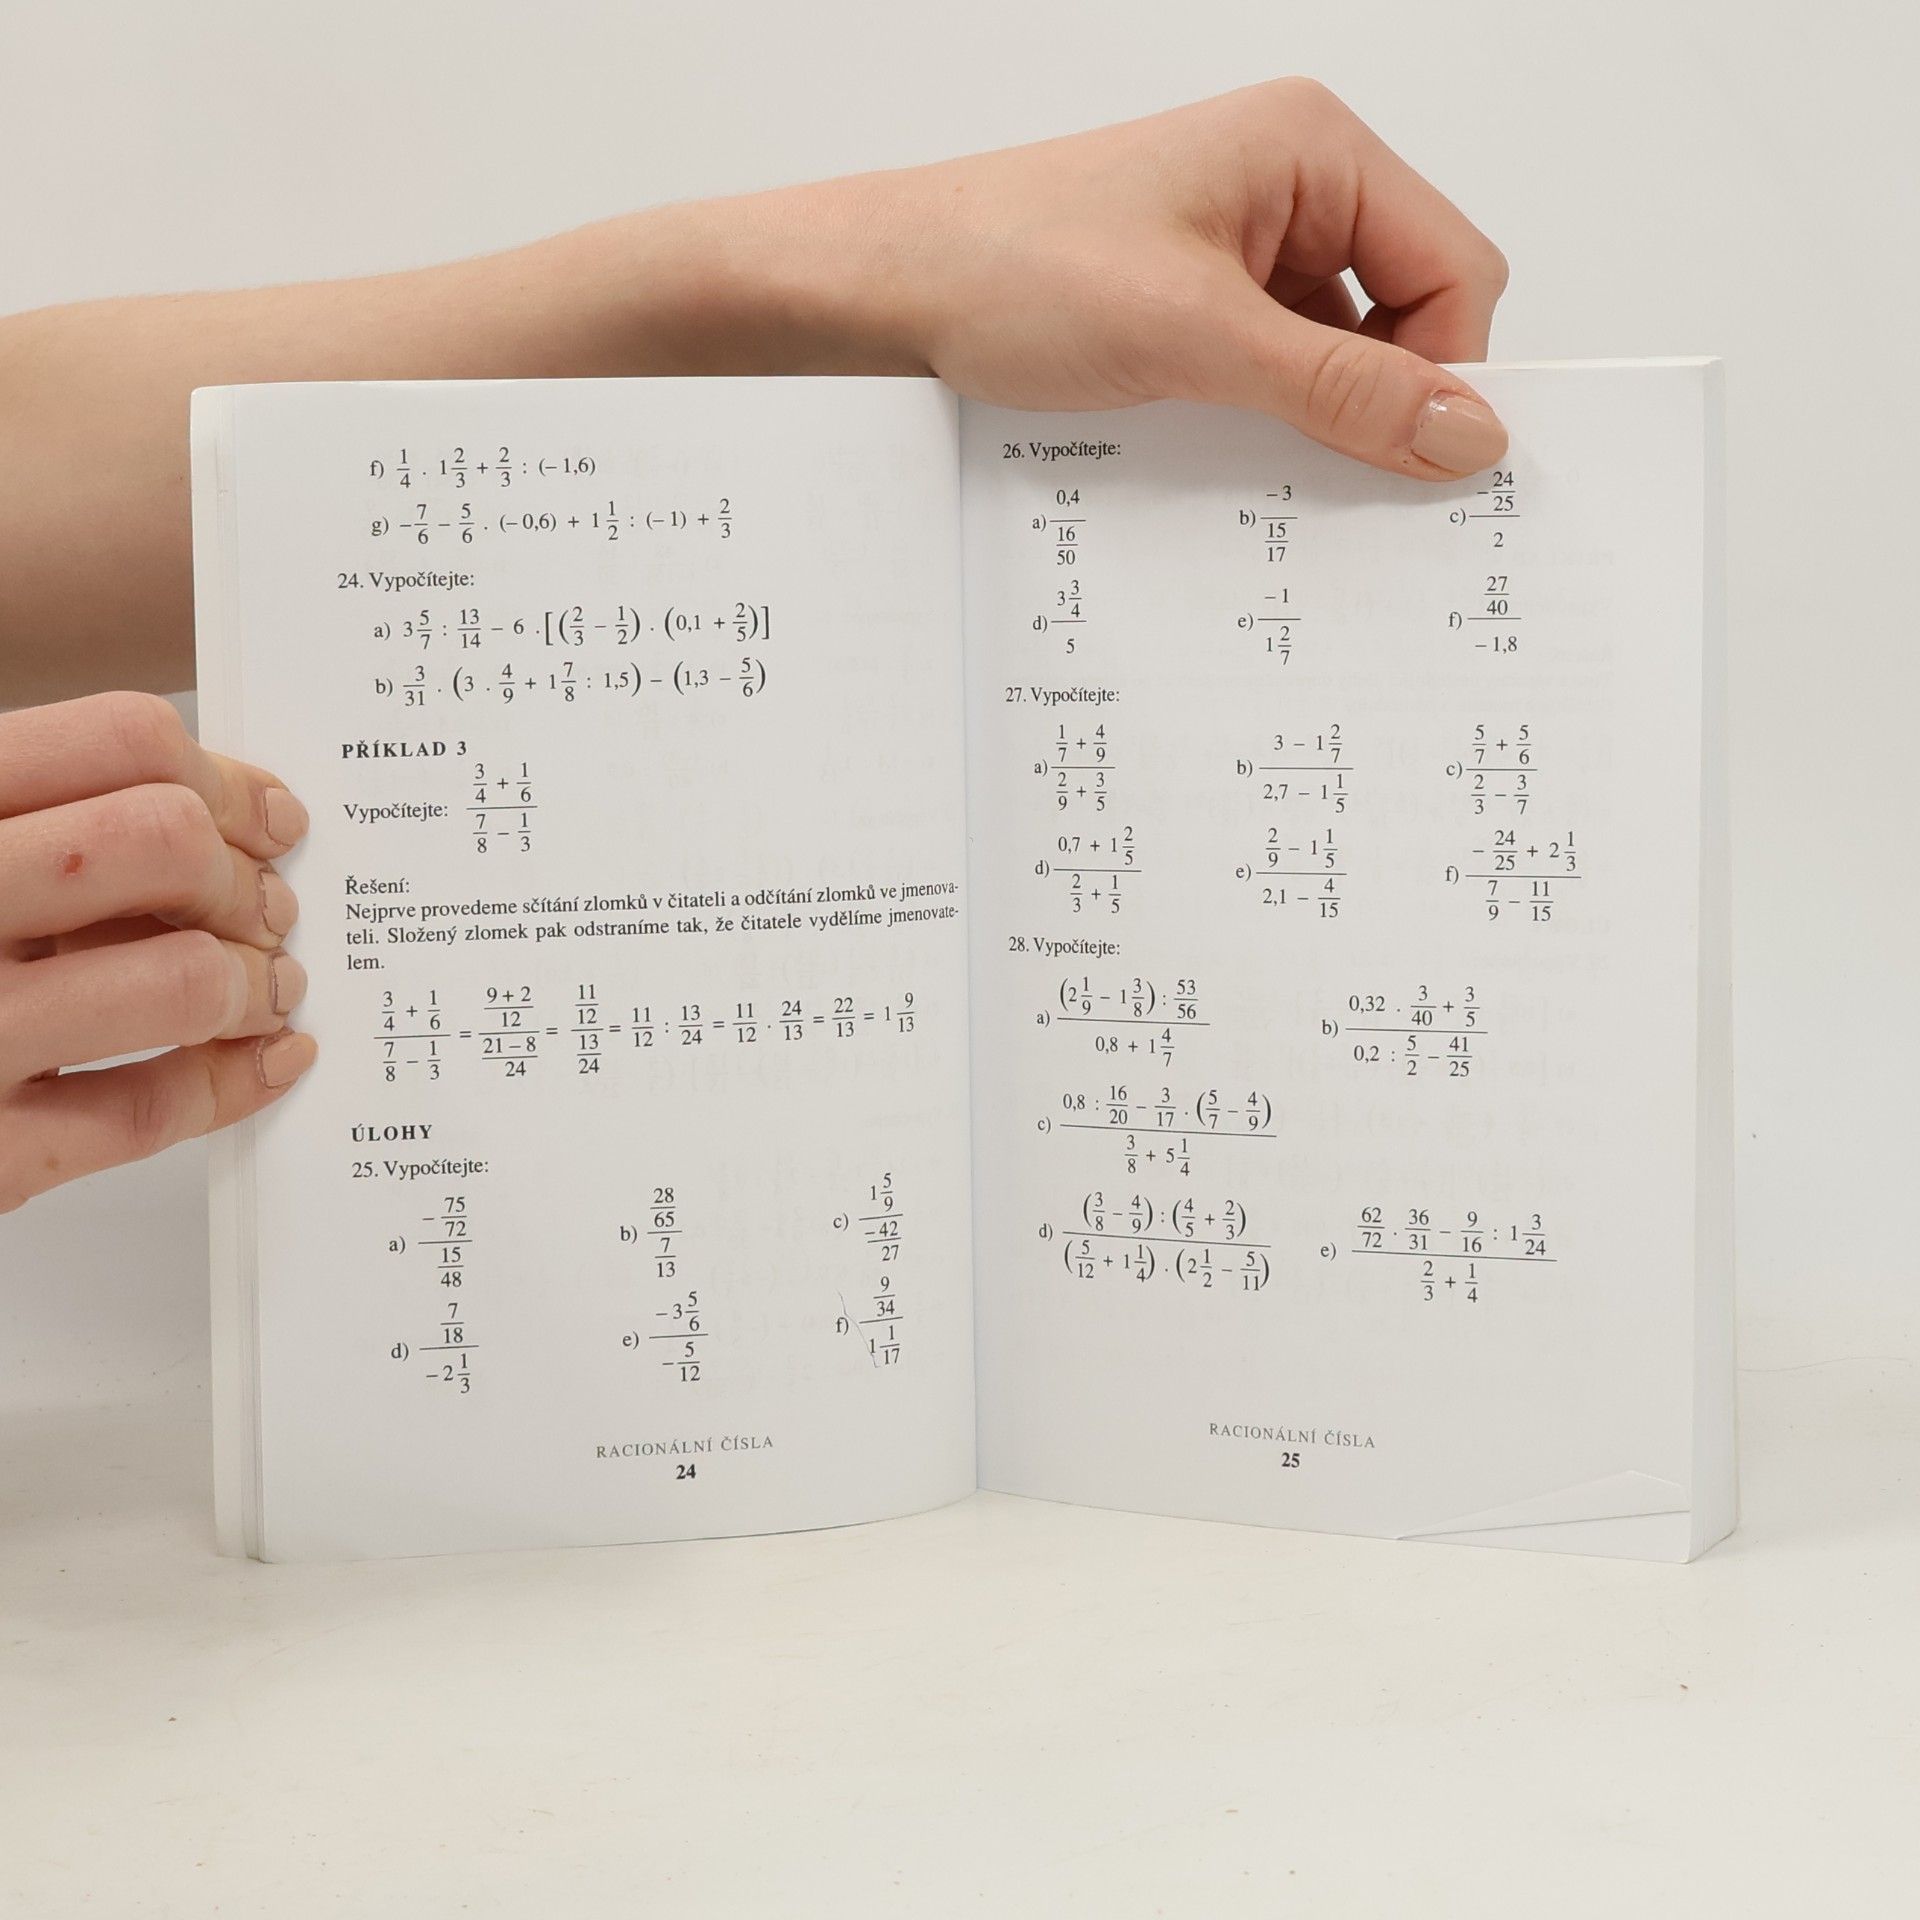 f) 1/4 . 1 2/3 + 2/3 : (– 1,6)
g) – 7/6 – 5/6 . (– 0,6) + 1 1/2 : (– 1) + 2/3
24. Vypočítejte:
a) 3 5/7 : 13/14 – 6 . [(2/3 – 1/2) . (0,1 + 2/5)]
b) 3/31 . (3 . 4/9 + 1 7/8 : 1,5) – (1,3 – 5/6)
PŘÍKLAD 3
Vypočítejte: (3/4 + 1/6)/(7/8 – 1/3)
Řešení:
Nejprve provedeme sčítání zlomků v čitateli a odčítání zlomků ve jmenova-
teli. Složený zlomek pak odstraníme tak, že čitatele vydělíme jmenovate-
lem.
(3/4 + 1/6)/(7/8 – 1/3) = ((9 + 2)/12)/((21 – 8)/24) = (11/12)/(13/24) = 11/12 : 13/24 = 11/12 . 24/13 = 22/13 = 1 9/13
ÚLOHY
25. Vypočítejte:
a) (– 75/72)/(15/48) b) (28/65)/(7/13) c) (1 5/9)/(– 42/27)
d) (7/18)/(– 2 1/3) e) (– 3 5/6)/(– 5/12) f) (9/34)/(1 1/17)
RACIONÁLNÍ ČÍSLA
24
26. Vypočítejte:
a) 0,4/(16/50) b) – 3/(15/17) c) (– 24/25)/2
d) (3 3/4)/5 e) – 1/(1 2/7) f) (27/40)/(– 1,8)
27. Vypočítejte:
a) (1/7 + 4/9)/(2/9 + 3/5) b) (3 – 1 2/7)/(2,7 – 1 1/5) c) (5/7 + 5/6)/(2/3 – 3/7)
d) (0,7 + 1 2/5)/(2/3 + 1/5) e) (2/9 – 1 1/5)/(2,1 – 4/15) f) (– 24/25 + 2 1/3)/(7/9 – 11/15)
28. Vypočítejte:
a) ((2 1/9 – 1 3/8) : 53/56)/(0,8 + 1 4/7) b) (0,32 . 3/40 + 3/5)/(0,2 : 5/2 – 41/25)
c) (0,8 : 16/20 – 3/17 . (5/7 – 4/9))/(3/8 + 5 1/4)
d) ((3/8 – 4/9) : (4/5 + 2/3))/((5/12 + 1 1/4) . (2 1/2 – 5/11)) e) (62/72 . 36/31 – 9/16 : 1 3/24)/(2/3 + 1/4)
RACIONÁLNÍ ČÍSLA
25